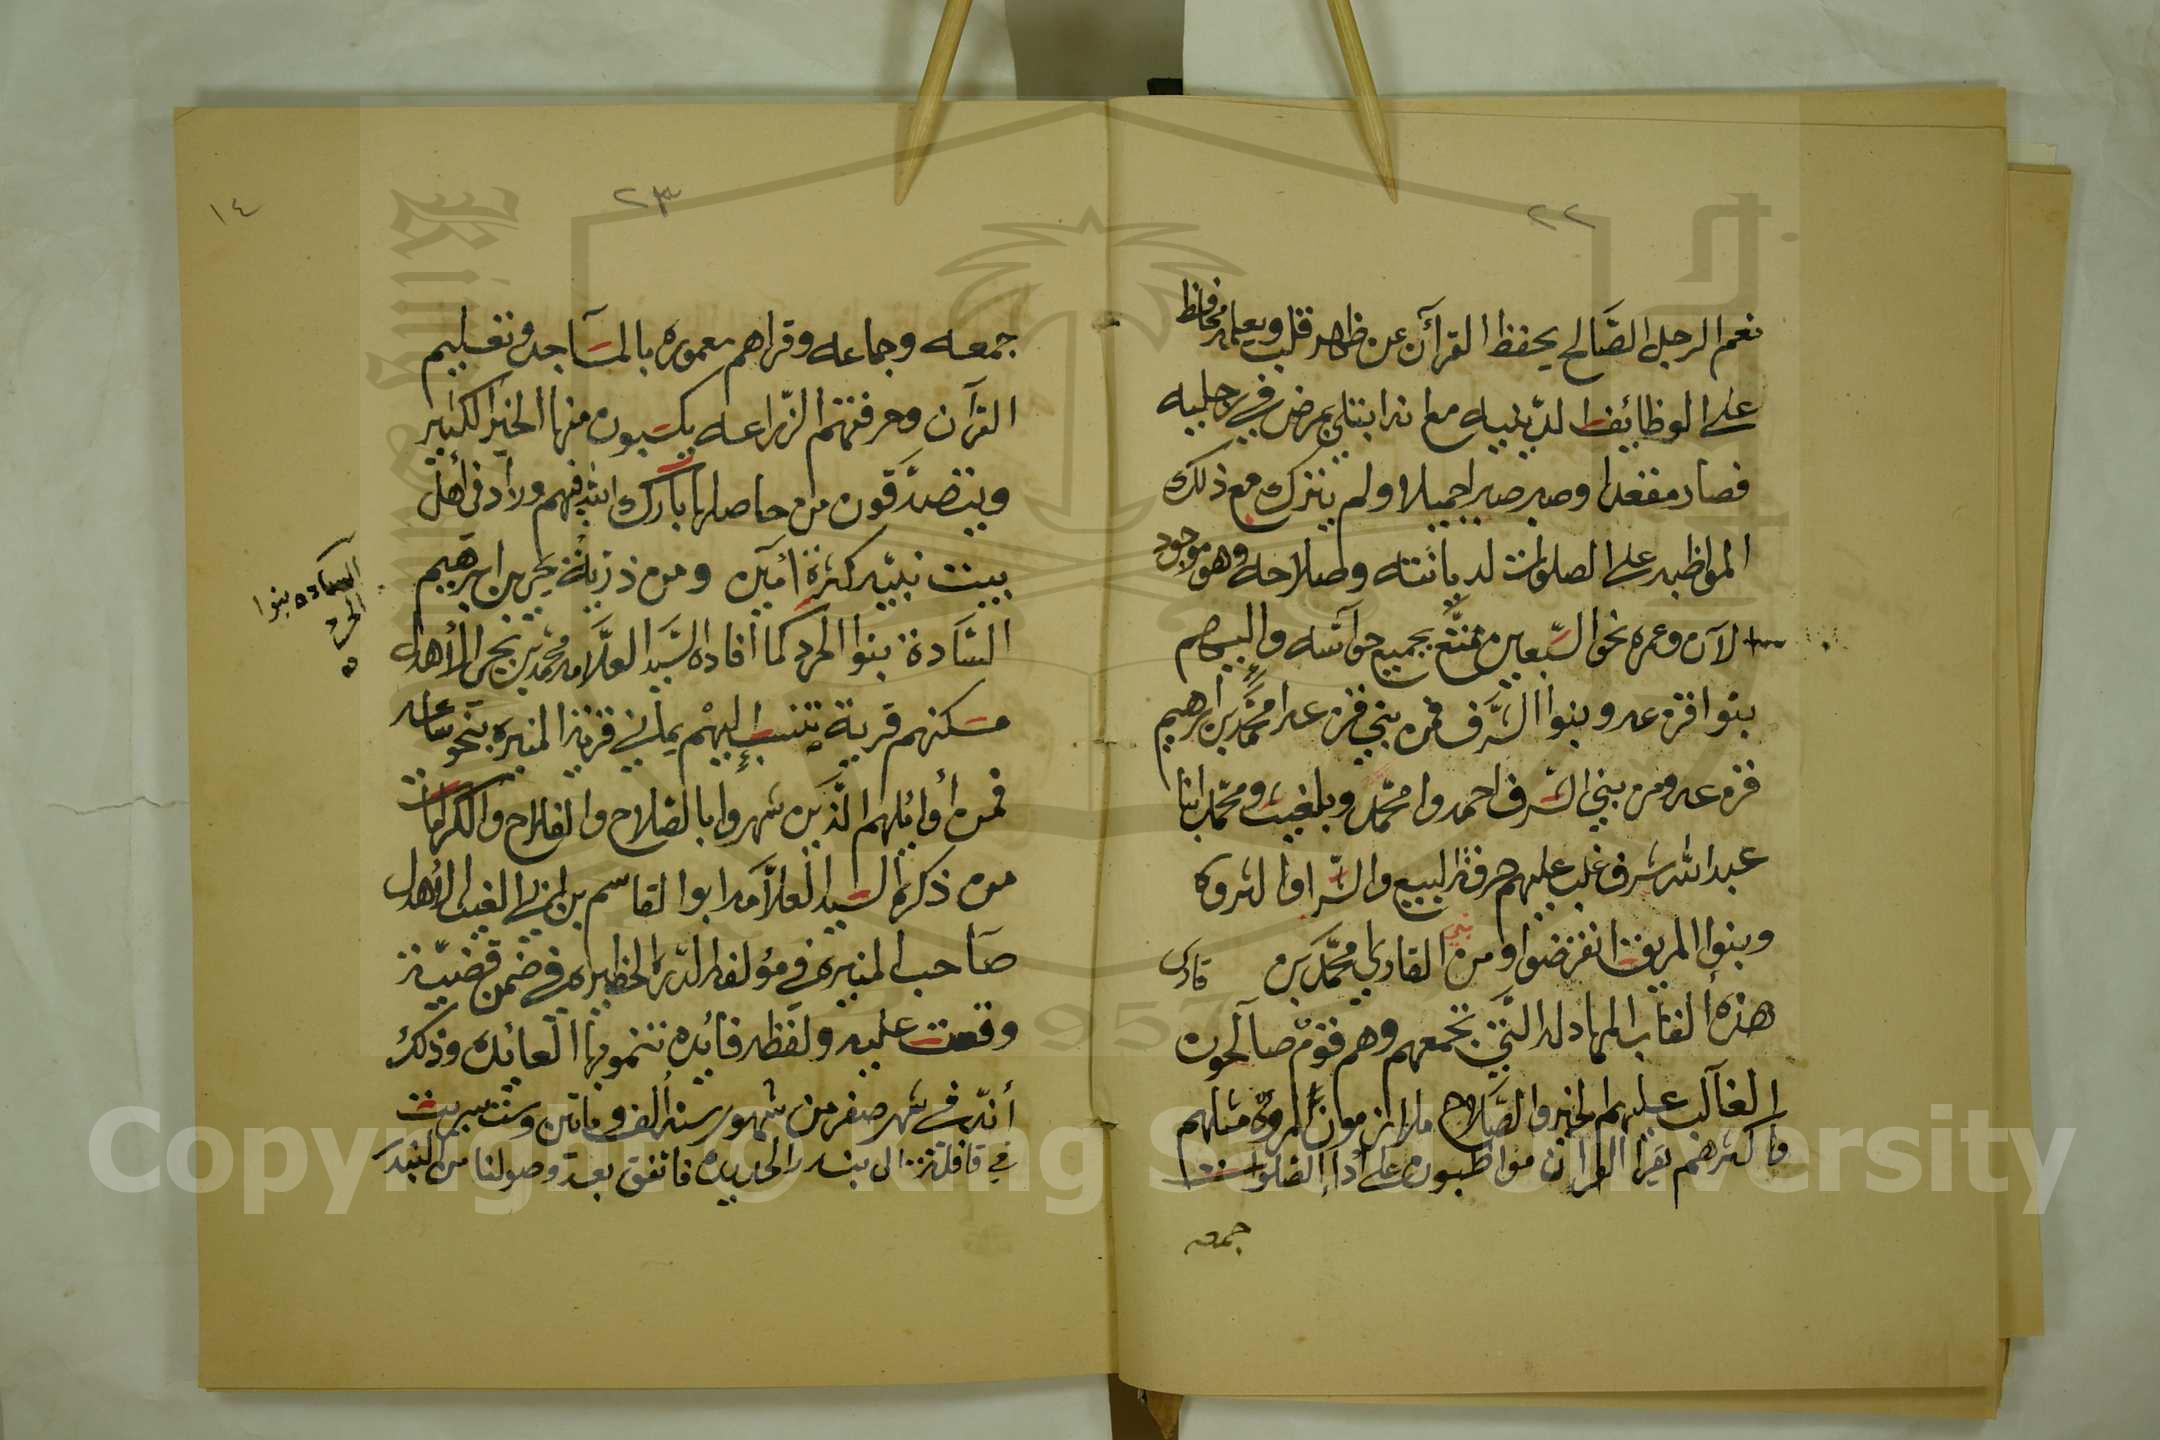 ٢٢
نعم الرجل الصَّالح يحفظ القرآن عن ظهر قلب ويعلمه محافظ
على الوظائف الدينيه مع انه ابتلي بمرض في رجليه
فصار مقعدا وصبر صبرا جميلا ولم يترك مع ذلك
المواظبه على الصلوات لديانته وصلاحه وهو موجود
الآن وعمره نحو السّبعين متمتّع بجميع حواسه واليهم
بنوا قزعه وبنوا الشَّرف فمن بني قزعه محمَّد بن ابرهيم
قزعه ومن بني الشّرف احمد ومحمّد وبلغيث ومحمّد ابنا
عبد الله شرف غلب عليهم حرفة البيع والشّرا والثروه
وبنوا المريقة انقرضوا ومن بني القادري محمَّد بن قادري
هذه ألقاب المهادله التَّي تجمعهم وهم قومٌ صالحون
الغالب عليهم الخير والصَّلاح ملازمون المروّه مثلهم
واكثرهم يقرا القران مواظبون على أداء الصلوات
جمعه
٢٣
١٤
جمعه وجماعه وقراهم معموره بالمسَاجد وتعليم
القرآن وحرفتهم الزّراعه يكتسبون منها الخير الكثير
ويتصدَّقون من حاصلها بارك الله فيهم وزاد في أهل
بيت نبيّه كثرة آمين ومن ذريّة يحيى بن ابرهيم
السَّادة بنوا المرد كما افاده السَّيد العلَّامه محمد بن يحيى الأهدل
السَّاده بنوا
المرد
مسَكنهم قرية تنسب إليهم يماني قرية المنيره بنحو ساعه
فمن أوايلهم الَّذين شهروا بالصّلاح والفلاح والكرامات
من ذكره السَّيد العلَّامه ابو القاسم بن ابي الغيث الأهدل
صَاحب المنيره في مؤلفه الدّرة الخطيره في ضمن قضيّة
وقعت عليه ولفظه فائده تنمو بها العائده وذلك
أنّه في شهر صفر من شهور سنة ألف وماتين وست سريت
في قافلة الى بندر الحديده فاتفق بعد وصولنا من البندر